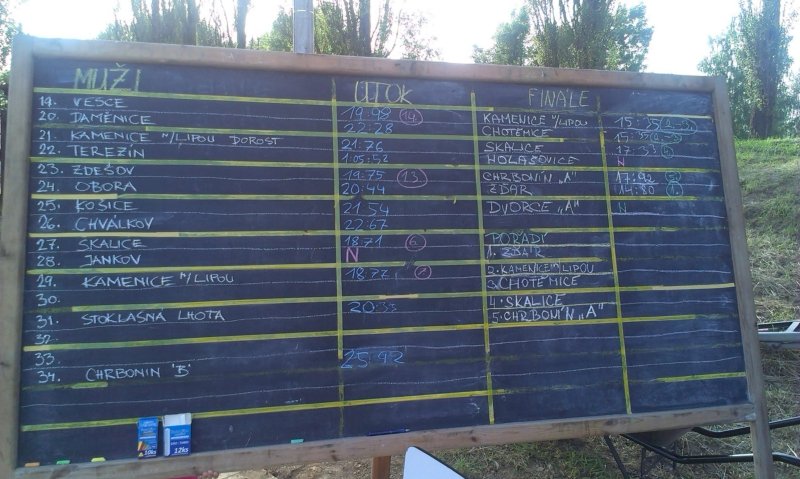 MUŽI ÚTOK FINÁLE
19. VESCE 19:98 14.
20. DAMĚNICE 22:28
21. KAMENICE N/LIPOU DOROST 21:76
22. TEREZÍN 1:05:52
23. ZDEŠOV 19:75 13.
24. OBORA 20:44
25. KOŠICE 21.54
26. CHVÁLKOV 22:67
27. SKALICE 18.71 6.
28. JANKOV N
29. KAMENICE N/LIPOU 18.77
30.
31. STOKLASNÁ LHOTA
32.
33.
34. CHRBONÍN "B" 25:92
KAMENICE N/LIPOU 15:35
CHOTĚMICE
SKALICE 17:33
HOLAŠOVICE N
CHRBONÍN "A" 17:92
ŽĎÁR 14:80 1.
DVORCE "A" N
POŘADÍ
1. ŽĎÁR
2. KAMENICE N/LIPOU
3. CHOTĚMICE
4. SKALICE
5. CHRBONÍN "A"
10ks
12ks